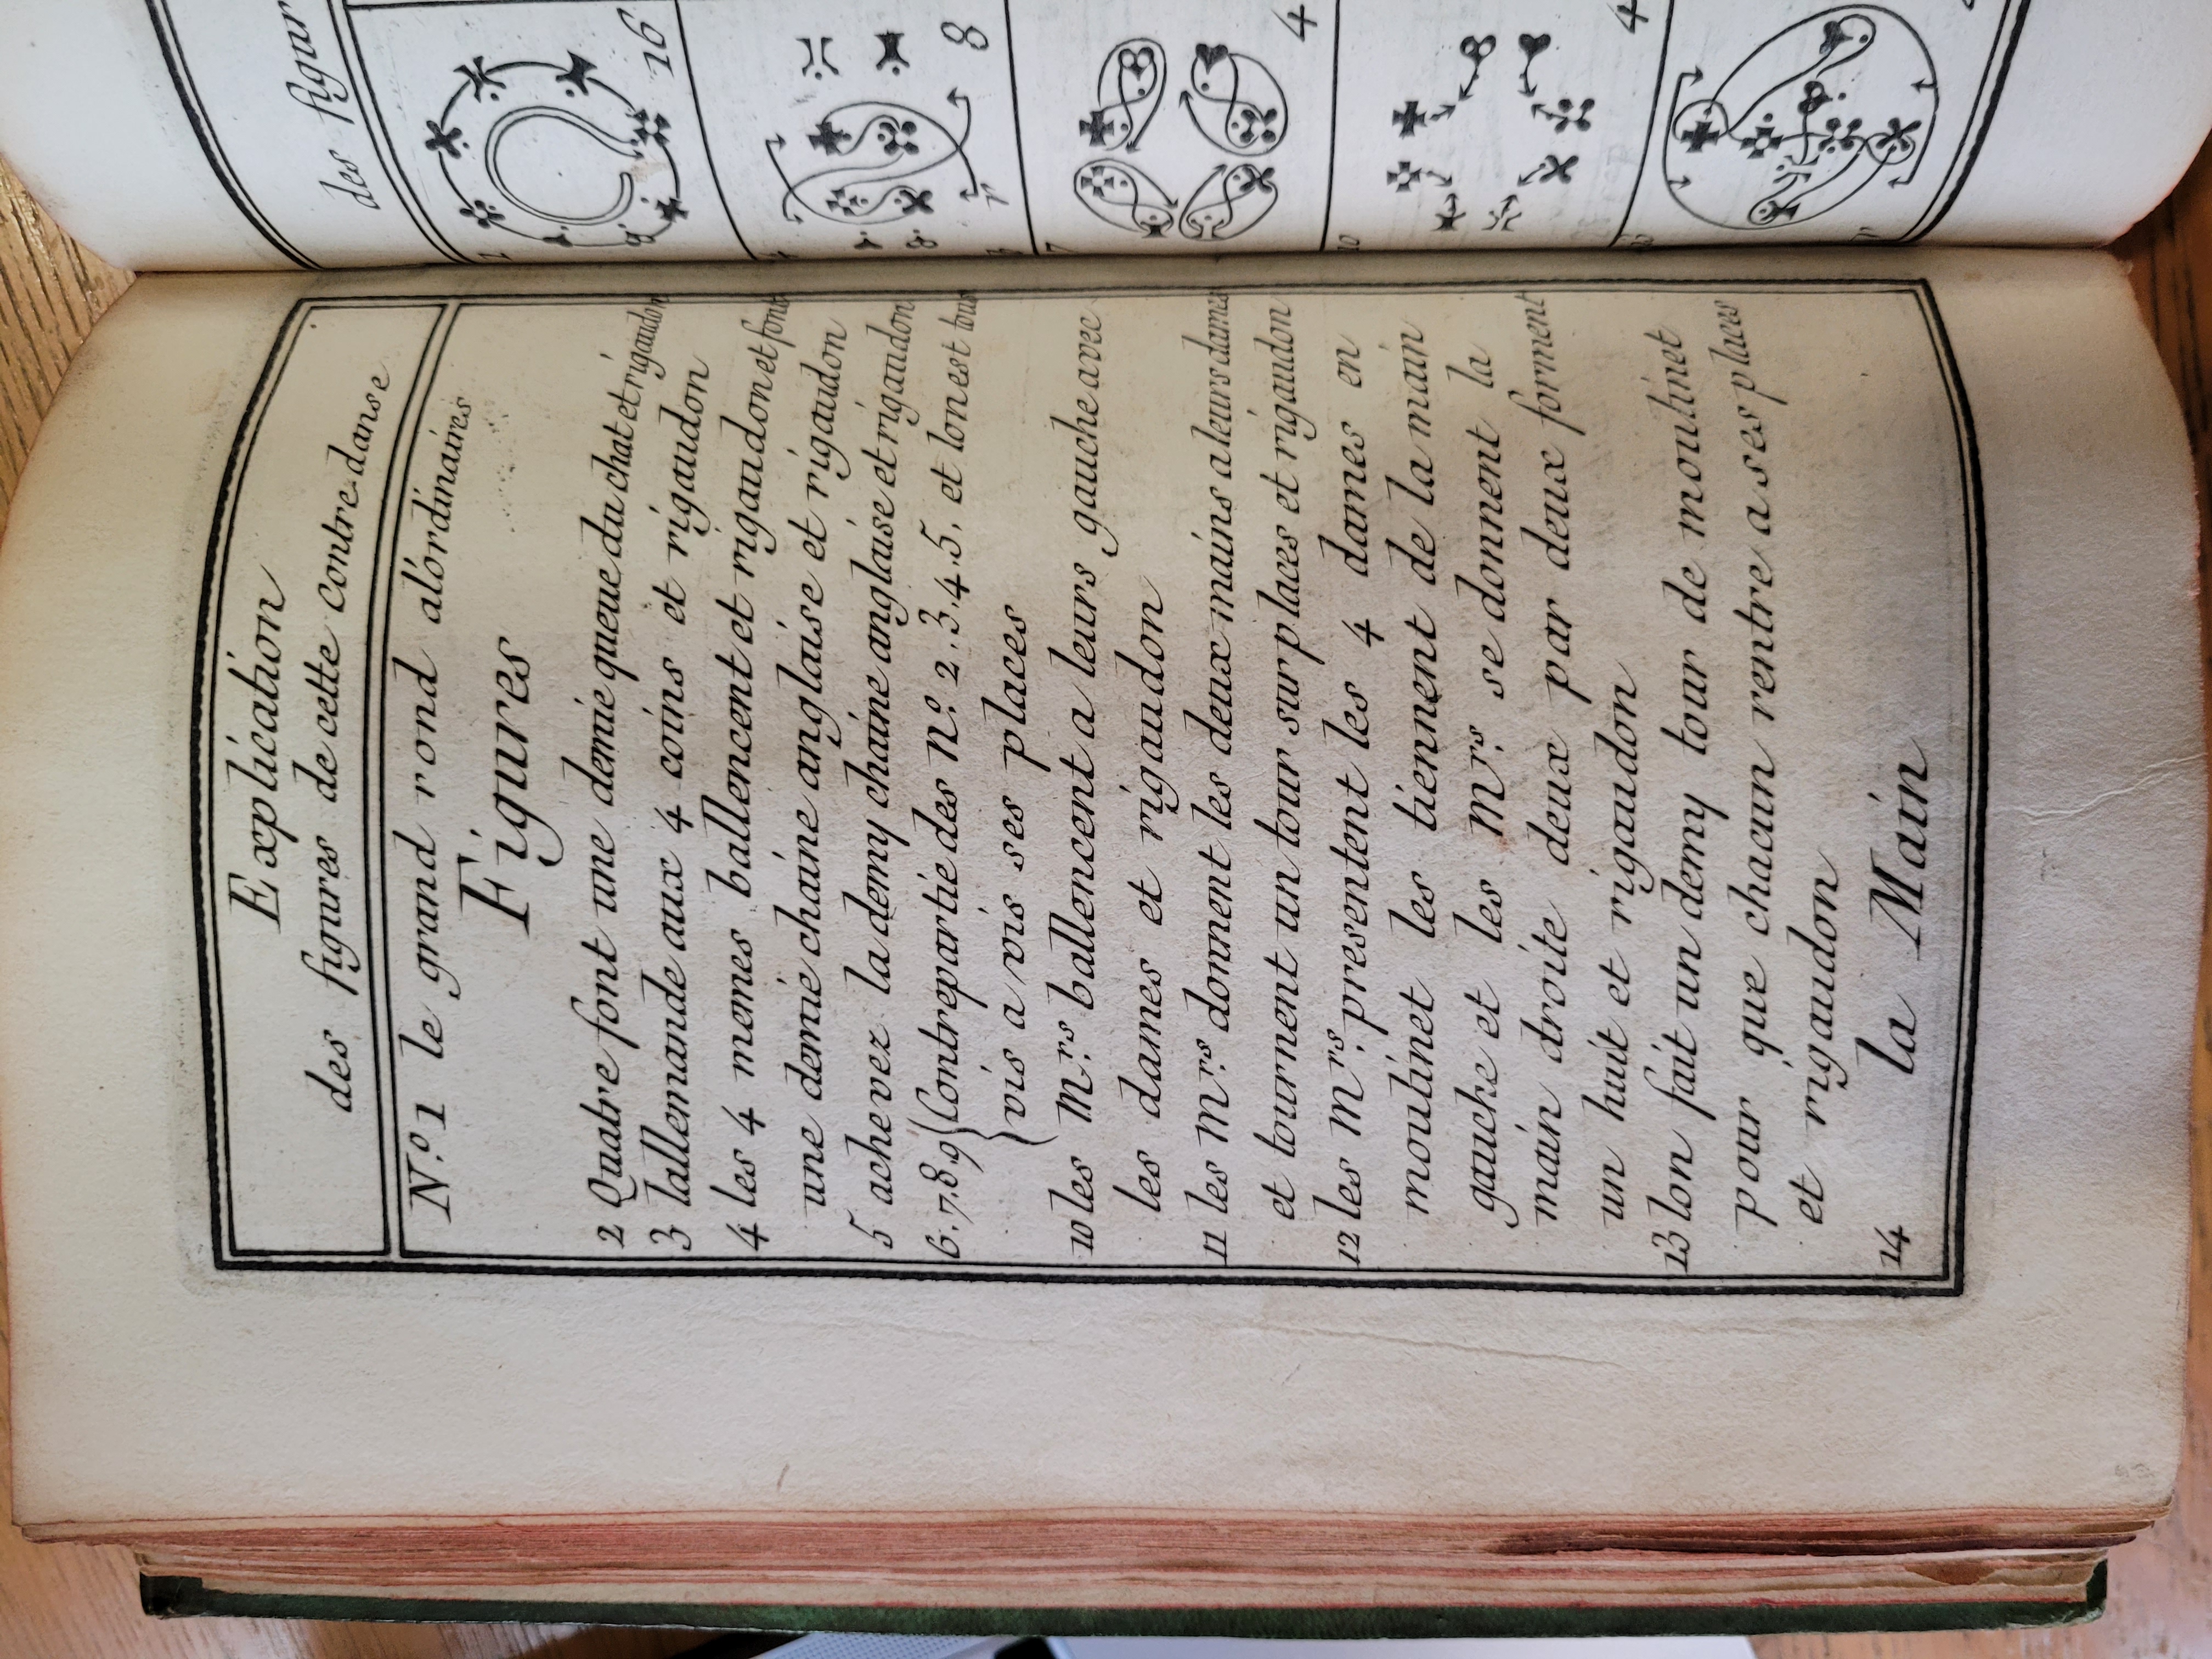 Explication
des figures de cette contre-danse
N.º 1 le grand rond alórdinaires
Figures
2 Quatre font une demie queue du chat et rigaudon
3 lallemande aux 4 coins et rigaudon
4 les 4 memes ballencent et rigaudon et font
une demie chaine anglaise et rigaudon
5 achevez la demy chaine anglaise et rigaudon
6.7.8.9 { Contrepartie des n.º 2.3.4.5. et lon est tous
vis a vis ses places
10 les M.rs ballencent a leurs gauche avec
les dames et rigaudon
11 les M.rs donnent les deux mains a leurs dames
et tournent un tour sur places et rigaudon
12 les M.rs presentent les 4 dames en
moulinet les tiennent de la main
gauche et les M.rs se donnent la
main droite deux par deux forment
un huit et rigaudon
13 lon fait un demy tour de moulinet
pour que chacun rentre a ses places
et rigaudon
14 la Main
des figur
2
16
8
7
4
10
4